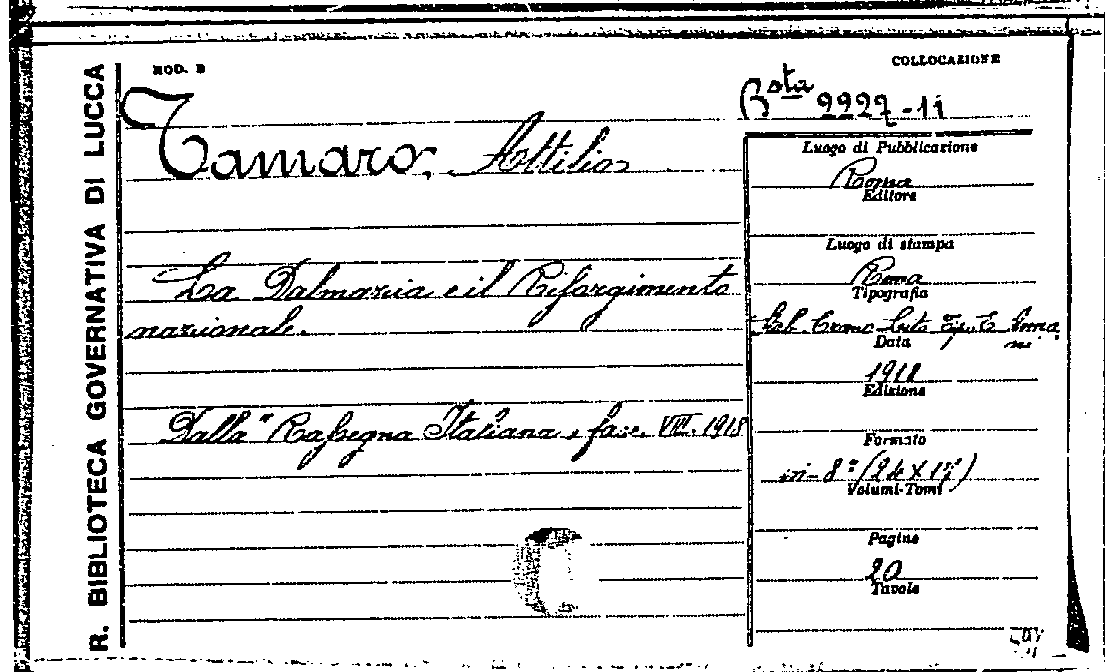 R. BIBLIOTECA GOVERNATIVA DI LUCCA
MOD. B
COLLOCAZIONE
Bsta 2227-11
Tamaro, Attilio
La Dalmazia e il Risorgimento
nazionale.
Dalla "Rassegna Italiana, fasc. VIII. 1918
Luogo di Pubblicazione
Roma
Editore
Luogo di stampa
Roma
Tipografia
Stab. Cromo-Lito Tip. E.
Data
1918
Edizione
Formato
in-8° (24 X 17)
Volumi-Tomi
Pagine
20
Tavole